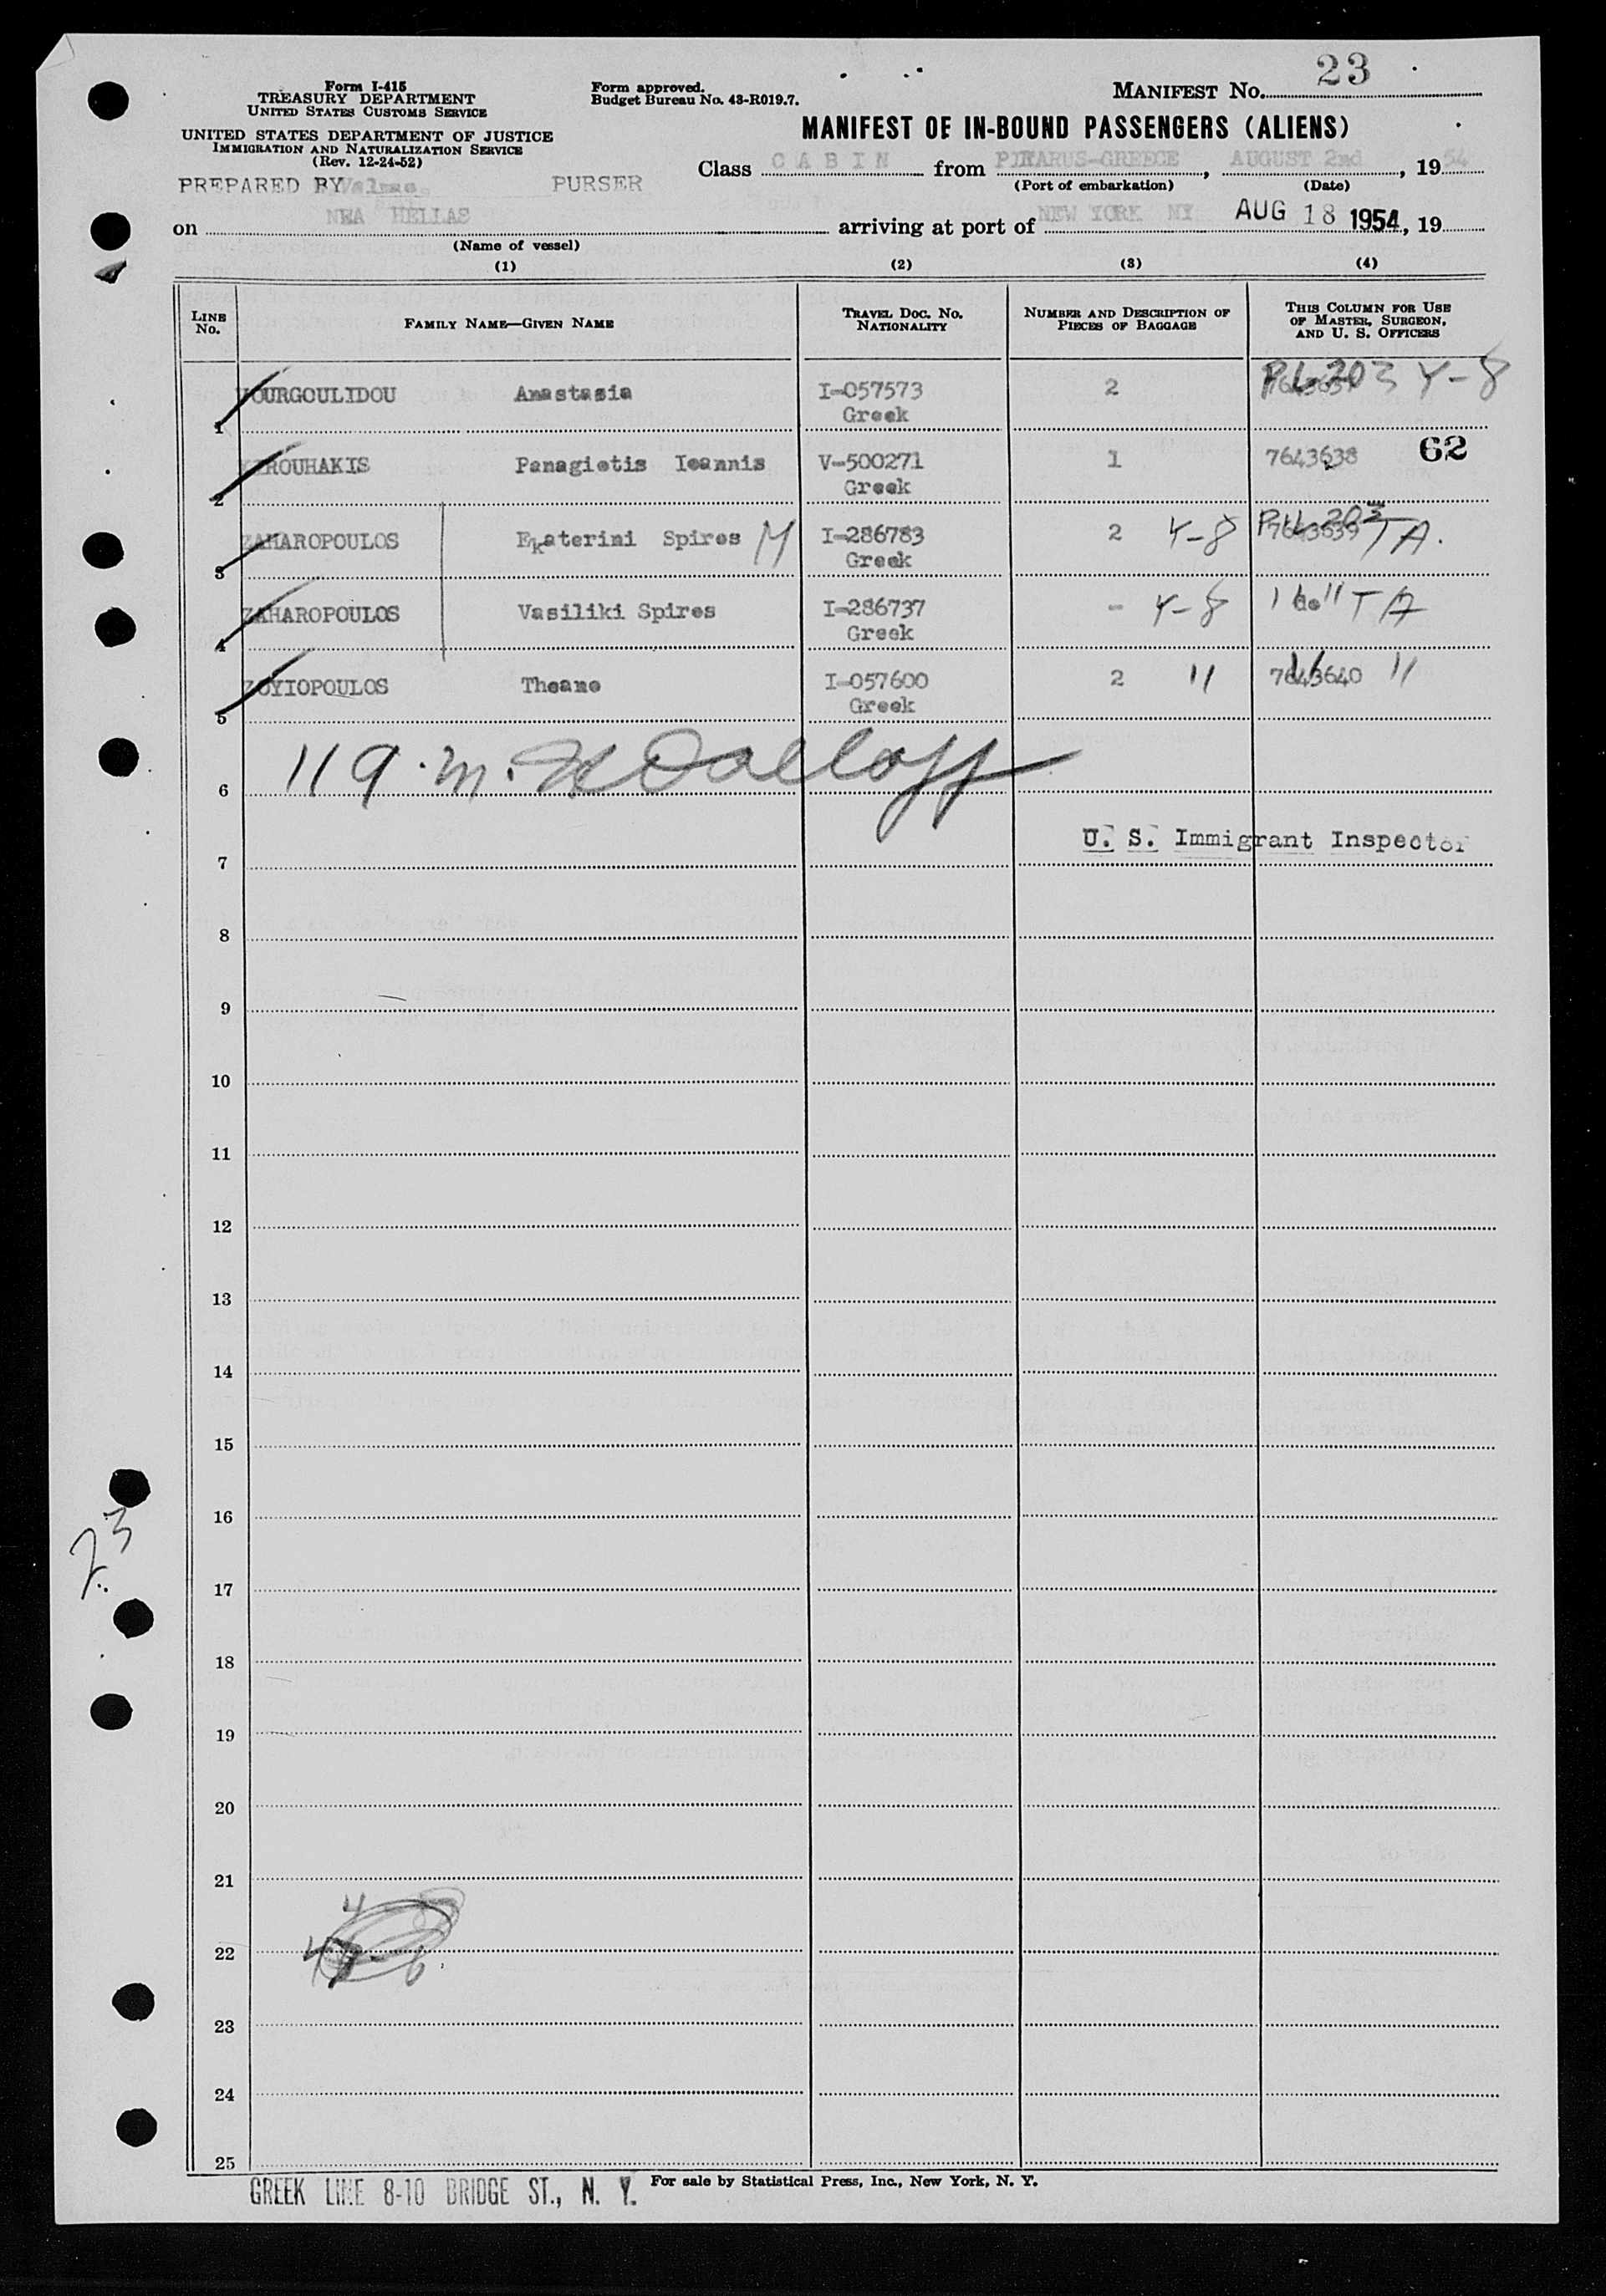 23
Form I-415
TREASURY DEPARTMENT
UNITED STATES CUSTOMS SERVICE
Form approved.
Budget Bureau No. 43-R019.7.
MANIFEST No.
UNITED STATES DEPARTMENT OF JUSTICE
IMMIGRATION AND NATURALIZATION SERVICE
(Rev. 12-24-52)
MANIFEST OF IN-BOUND PASSENGERS (ALIENS)
Class CABIN from PIRARUS-GREECE, AUGUST 2nd, 1954
(Port of embarkation) (Date)
PREPARED BY PURSER
on NEA HELLAS arriving at port of NEW YORK NY AUG 18 1954, 19
(Name of vessel)
(1) (2) (3) (4)
LINE No. FAMILY NAME—GIVEN NAME TRAVEL DOC. No. NATIONALITY NUMBER AND DESCRIPTION OF PIECES OF BAGGAGE THIS COLUMN FOR USE OF MASTER, SURGEON, AND U. S. OFFICERS
1 VOURGOULIDOU Anastasia I-057573 2 P.L. 203 Y-8
Greek
2 Panagiotis Ioannis V-500271 1 7643638 62
Greek
3 ZAHAROPOULOS Ekaterini Spiros M I-286783 2 Y-8 P.L. 203 7643639 TA.
Greek
4 ZAHAROPOULOS Vasiliki Spires I-286737 - Y-8 " TA
Greek
5 ZOYIOPOULOS Theano I-057600 2 " 7643640 "
Greek
6
U. S. Immigrant Inspector
7
8
9
10
11
12
13
14
15
16
23
17
18
19
20
21
4
22
23
24
25
GREEK LINE 8-10 BRIDGE ST., N. Y. For sale by Statistical Press, Inc., New York, N. Y.